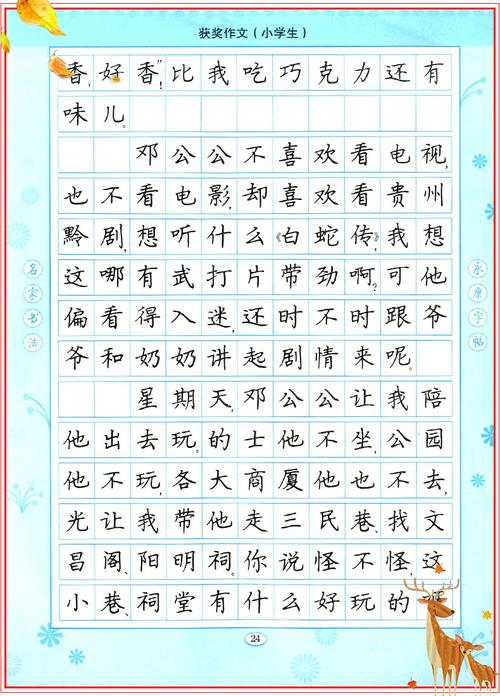 获奖作文（小学生）
香，好香”！比我吃巧克力还有
味儿。
邓公公不喜欢看电视，
也不看电影，却喜欢看贵州
黔剧，想听什么《白蛇传》，我想
这哪有武打片带劲啊？可他
偏看得入迷，还时不时跟爷
爷和奶奶讲起剧情来呢。
星期天，邓公公让我陪
他出去玩。的士他不坐，公园
他不玩，各大商厦他也不去，
光让我带他走三民巷、找文
昌阁、阳明祠。你说怪不怪，这
小巷、祠堂有什么好玩的
名家书法
永康字帖
24